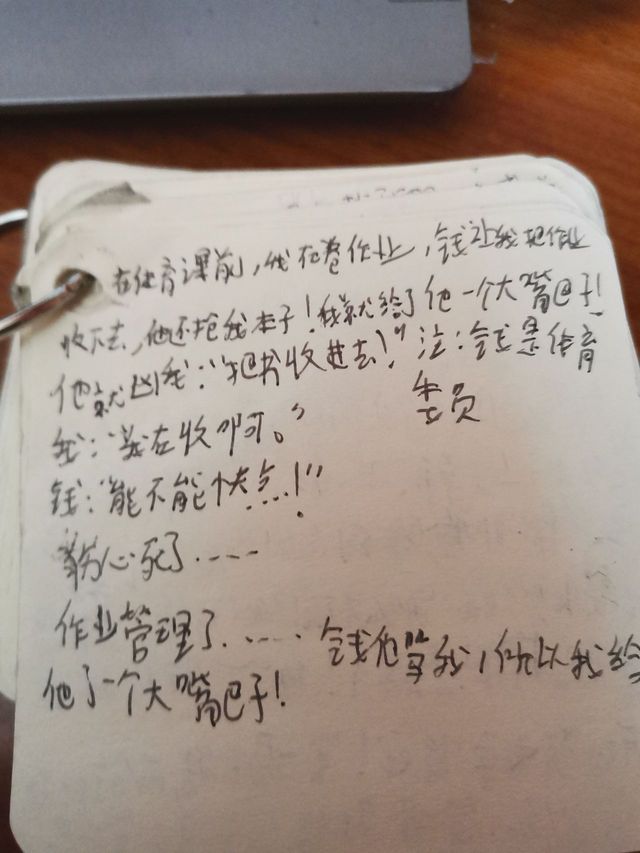 在体育课前，我在卷作业，钱让我把作业
收下去，他还抢我本子！我就给了他一个大嘴巴子！
他就凶我：“把书收进去！”注：钱是体育
委员
我：“我在收啊。”
钱：“能不能快点！”
心死了……
作业管理了……钱他骂我，所以我给
他了一个大嘴巴子！